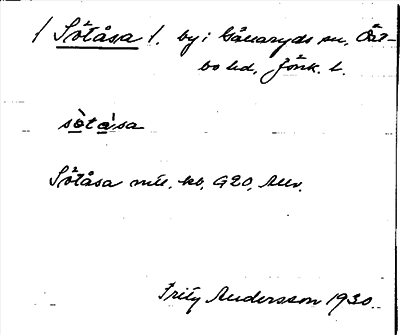 / Sötåsa /. by i Gåvaryds sn, Öst-
bo hd, Jönk. l.
sòtàsa
Sötåsa mtl. kb. G20, Aus.
Fritz Andersson 1930.